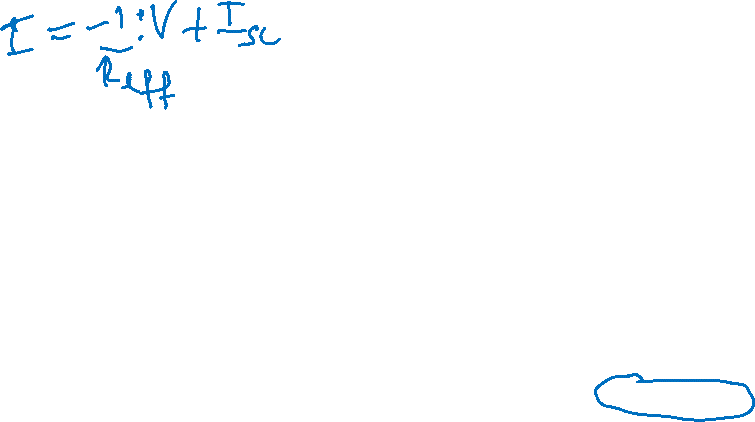 I = -1/R_eff : V + I_sc